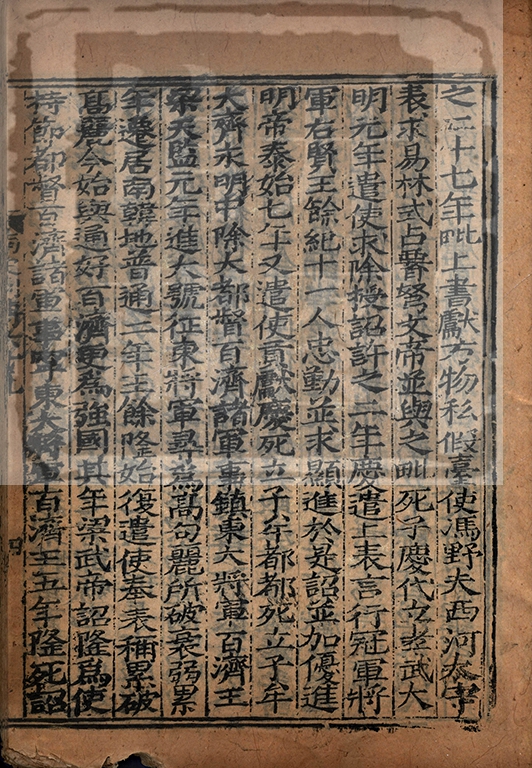 之二十七年毗上書獻方物私假臺使馮野夫西河太守
表求易林式占腎弩文帝並與之毗死子慶代立孝武大
明元年遣使求除授詔許之二年慶遣上表言行冠軍將
軍右賢王餘紀十一人忠勤並求顯進於是詔並加優進
明帝泰始七年又遣使貢獻慶死立子牟都都死立子牟
大齊永明中除大都督百濟諸軍事鎮東大將軍百濟王
梁天監元年進大號征東將軍尋為高句麗所破衰弱累
年遷居南韓地普通二年王餘隆始復遣使奉表稱累破
高麗今始與通好百濟更為強國其年梁武帝詔隆為使
持節都督百濟諸軍事寧東大將軍百濟王五年隆死詔